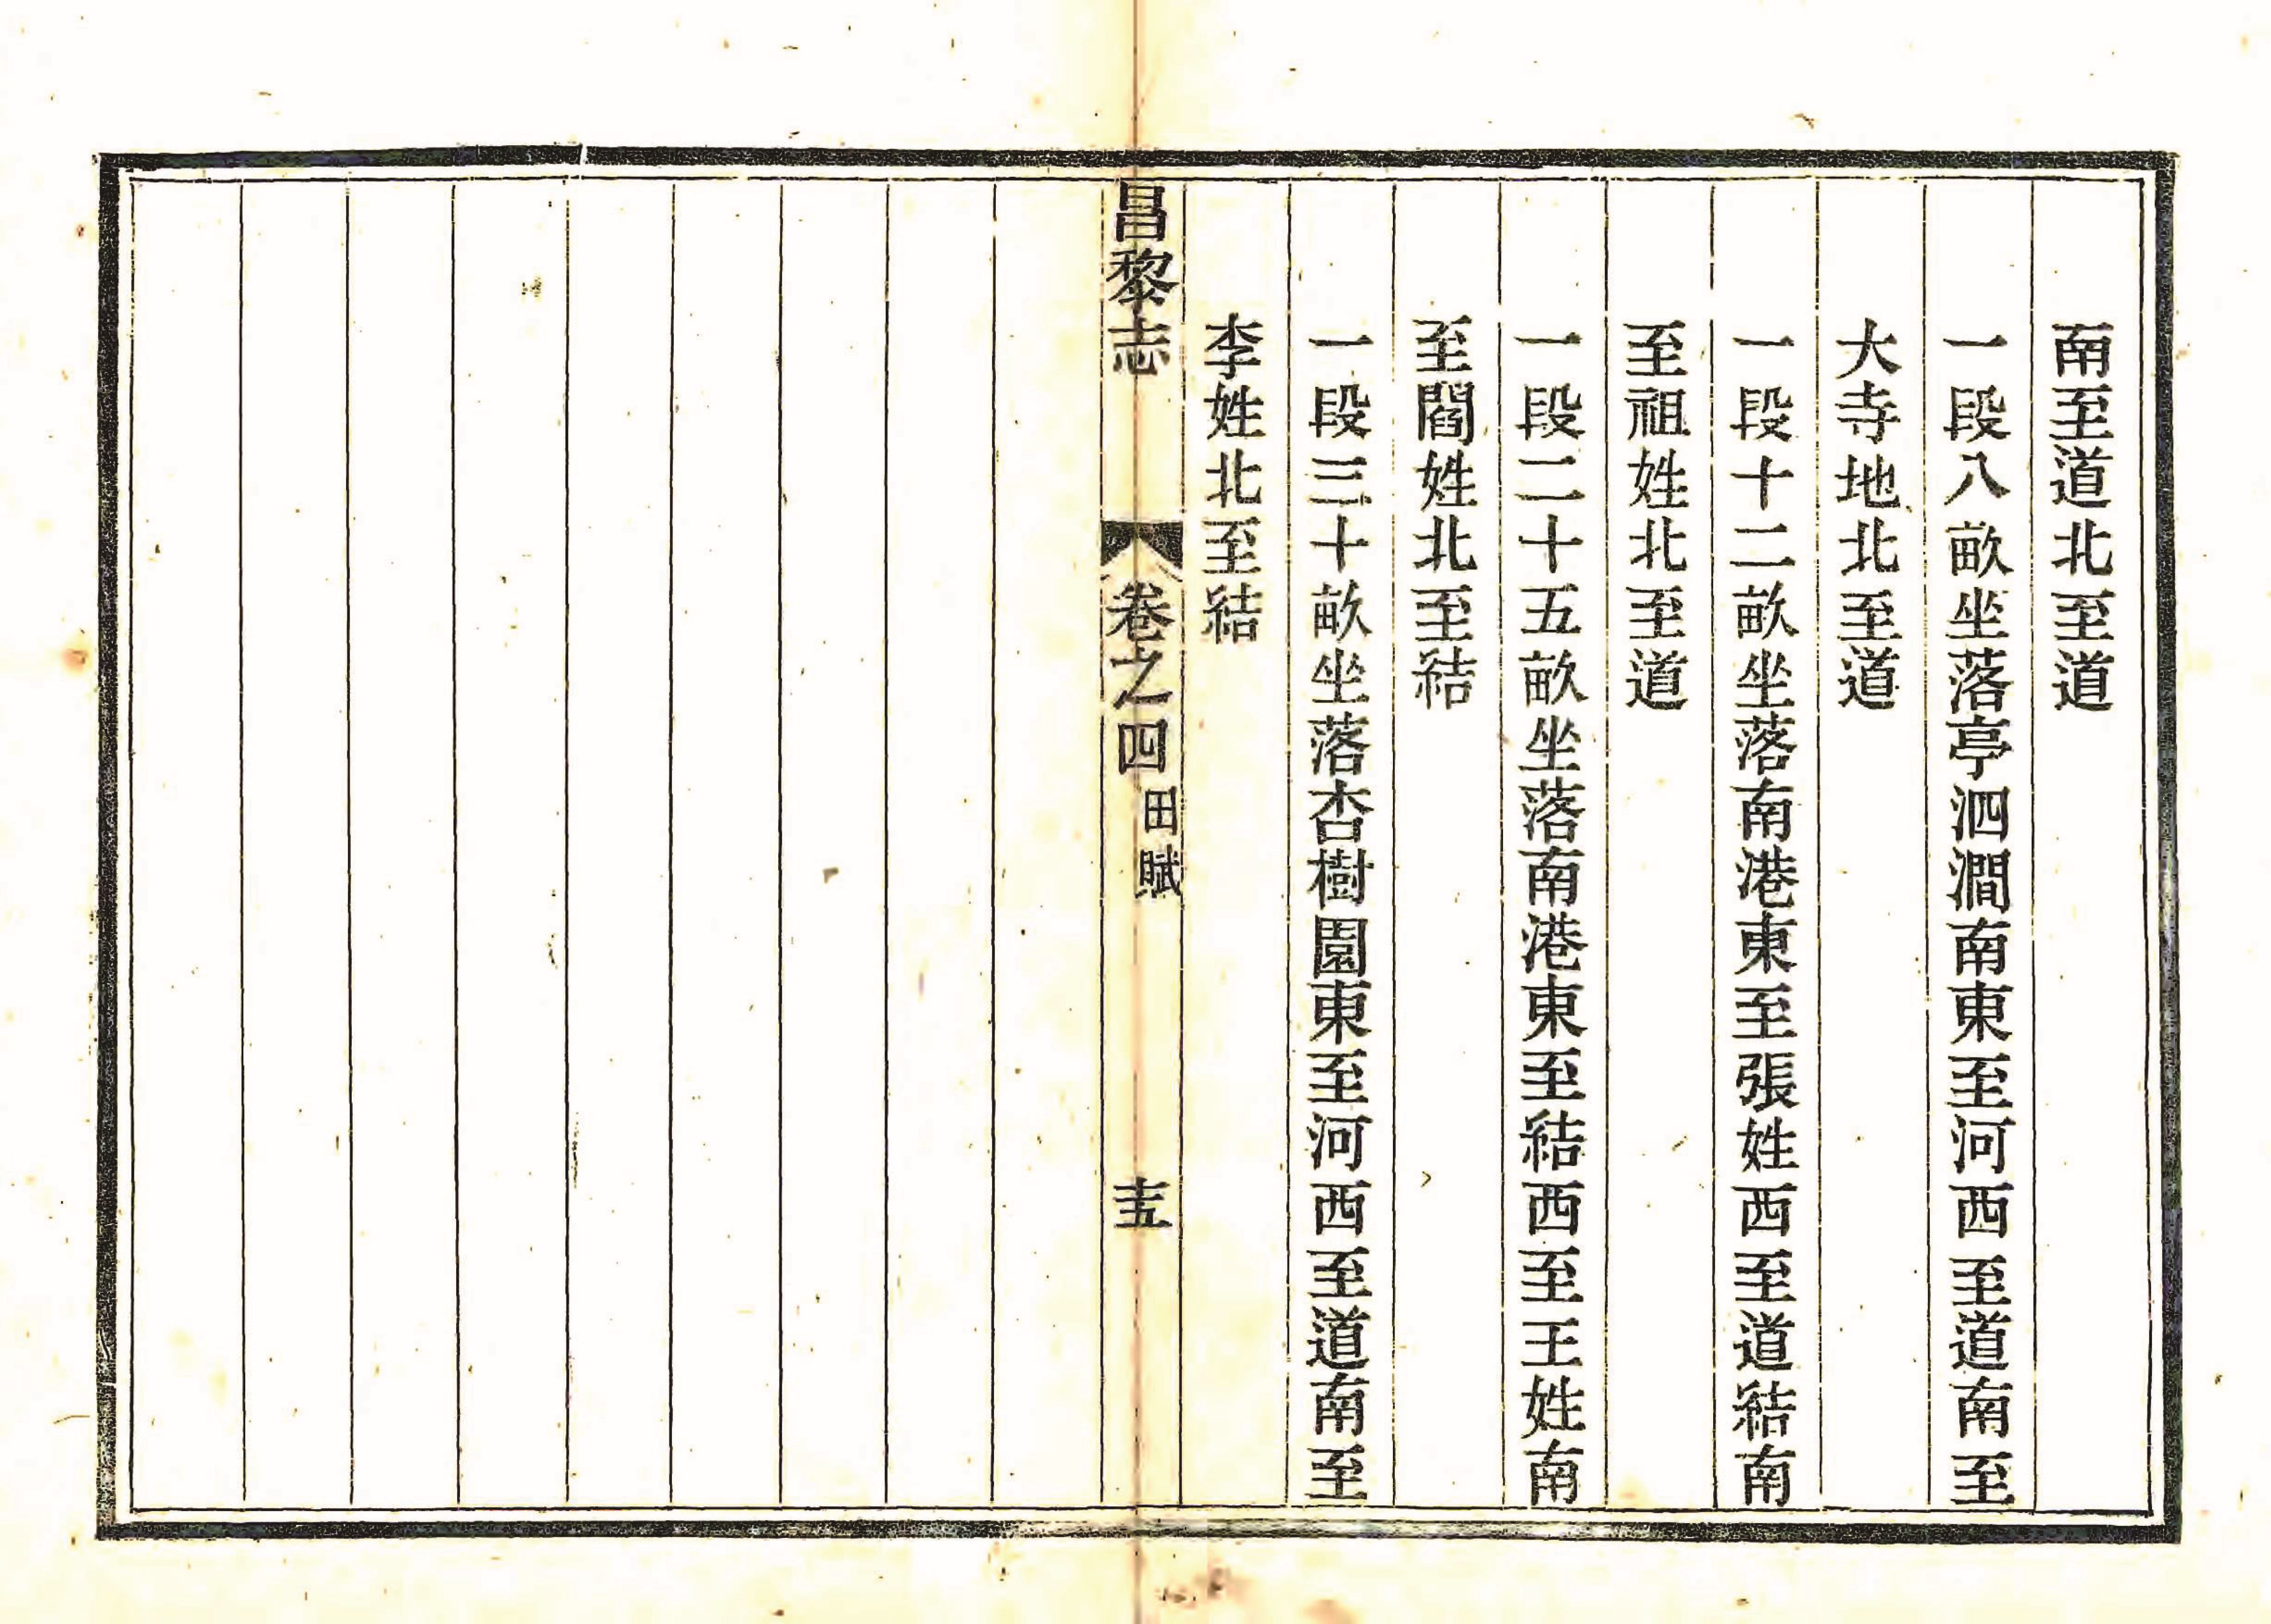 南至道北至道
一段八畝坐落亭泗澗南東至河西至道南至
大寺地北至道
一段十二畝坐落南港東至張姓西至道結南
至祖姓北至道
一段二十五畝坐落南港東至結西至王姓南
至閻姓北至結
一段三十畝坐落杏樹園東至河西至道南至
李姓北至結
昌黎志 卷之四 田賦 十五